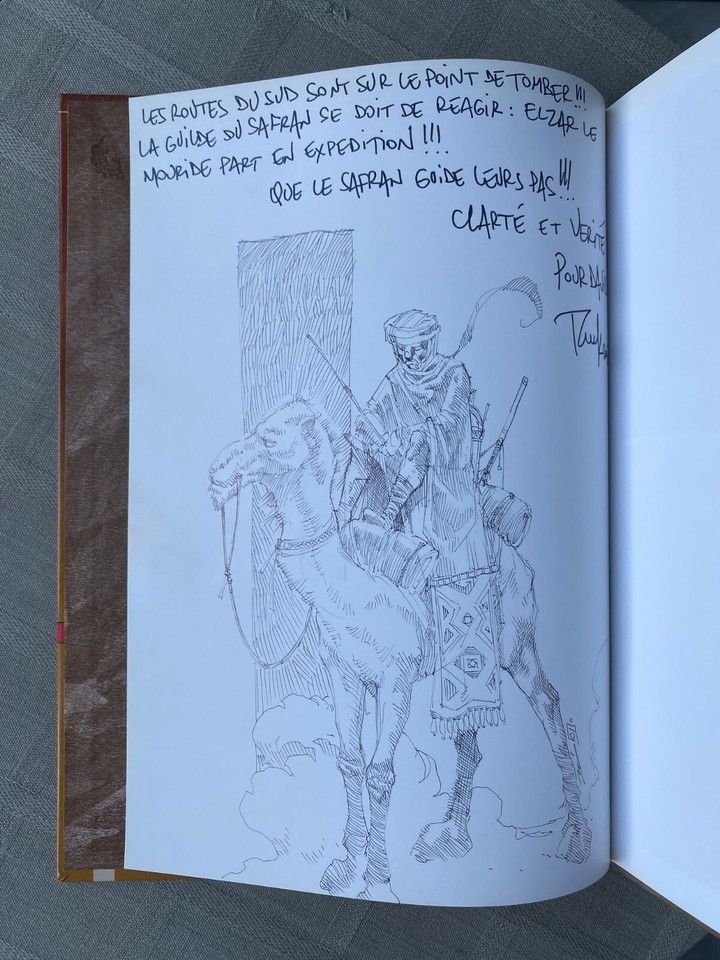 LES ROUTES DU SUD SONT SUR LE POINT DE TOMBER !!!
LA GUILDE DU SAFRAN SE DOIT DE REAGIR : ELZAR LE
MOURIDE PART EN EXPEDITION !!!
QUE LE SAFRAN GUIDE LEURS PAS !!!
CLARTÉ ET VERITÉ
POUR